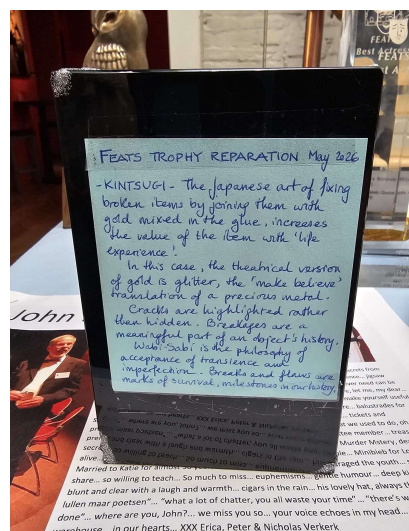 FEATS
Best Actress
FEATS TROPHY REPARATION May 2026
- KINTSUGI - The Japanese art of fixing
broken items by joining them with
gold mixed in the glue, increases
the value of the item with 'life
experience'.
In this case, the theatrical version
of gold is glitter, the 'make believe'
translation of a precious metal.
Cracks are highlighted rather
than hidden. Breakages are a
meaningful part of an object's history.
Wabi-Sabi is the philosophy of
acceptance of transience and
imperfection. Breaks and flaws are
marks of survival, milestones in our history.
John
Married to Katie for almost
share... so willing to teach... So much to miss... euphemisms... gentle humour... deep
blunt and clear with a laugh and warmth... cigars in the rain... his lovely hat, always
lullen maar poetsen"... "what a lot of chatter, you all waste your time" ... "there's
done"... where are you, John?... we miss you so... your voice echoes in my head...
in our hearts... XXX Erica, Peter & Nicholas Verkerk